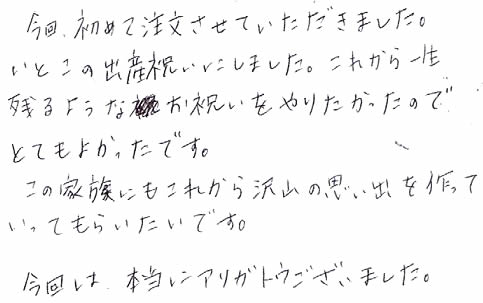 今回、初めて注文させていただきました。
いとこの出産祝いにしました。これから一生
残るようなお祝いをやりたかったので
とてもよかったです。
この家族にもこれから沢山の思い出を作って
いってもらいたいです。
今回は、本当にアリガトウございました。